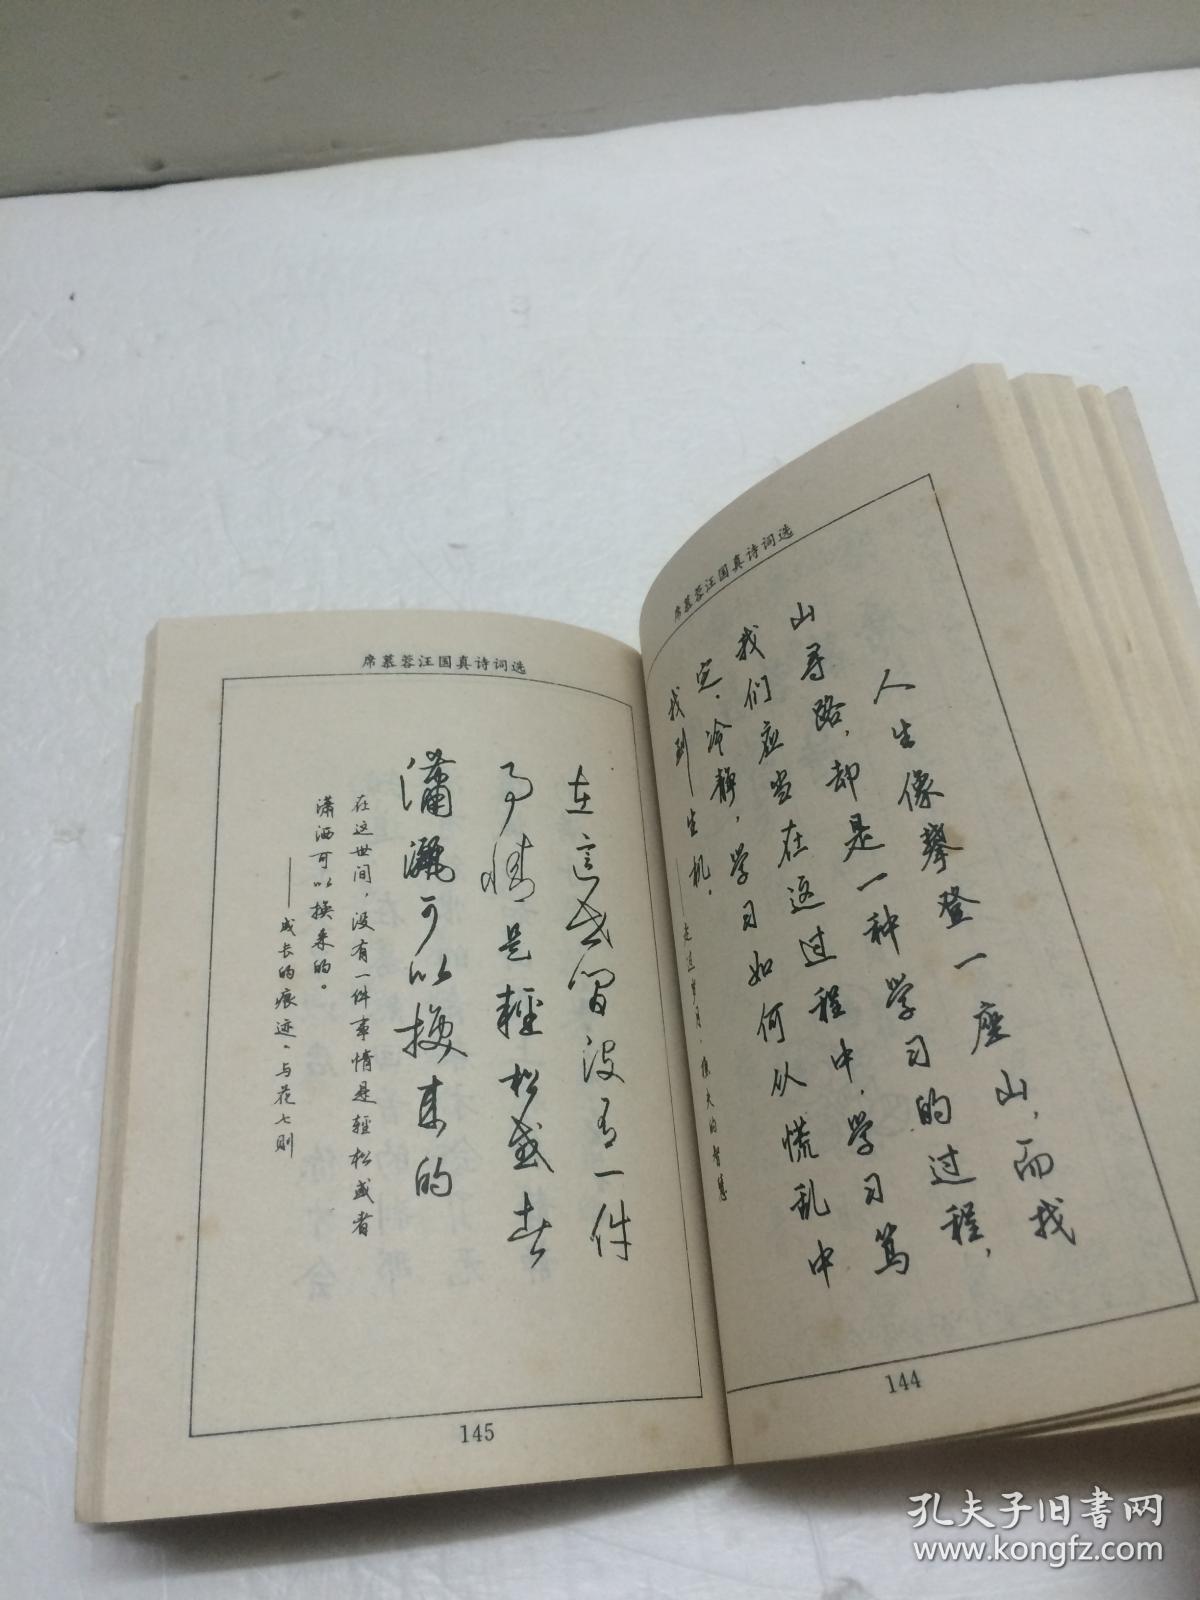 席慕蓉汪国真诗词选
人生像攀登一座山，而找
山寻路，却是一种学习的过程，
我们应当在这过程中，学习笃
定、冷静，学习如何从慌乱中
找到——生机。
144
席慕蓉汪国真诗词选
在這世间没有一件
事情是輕松或者
瀟灑可以换来的
在这世间，没有一件事情是輕松或者
潇洒可以换来的。
——成长的痕迹、与花七则
145
孔夫子旧书网
www.kongfz.com